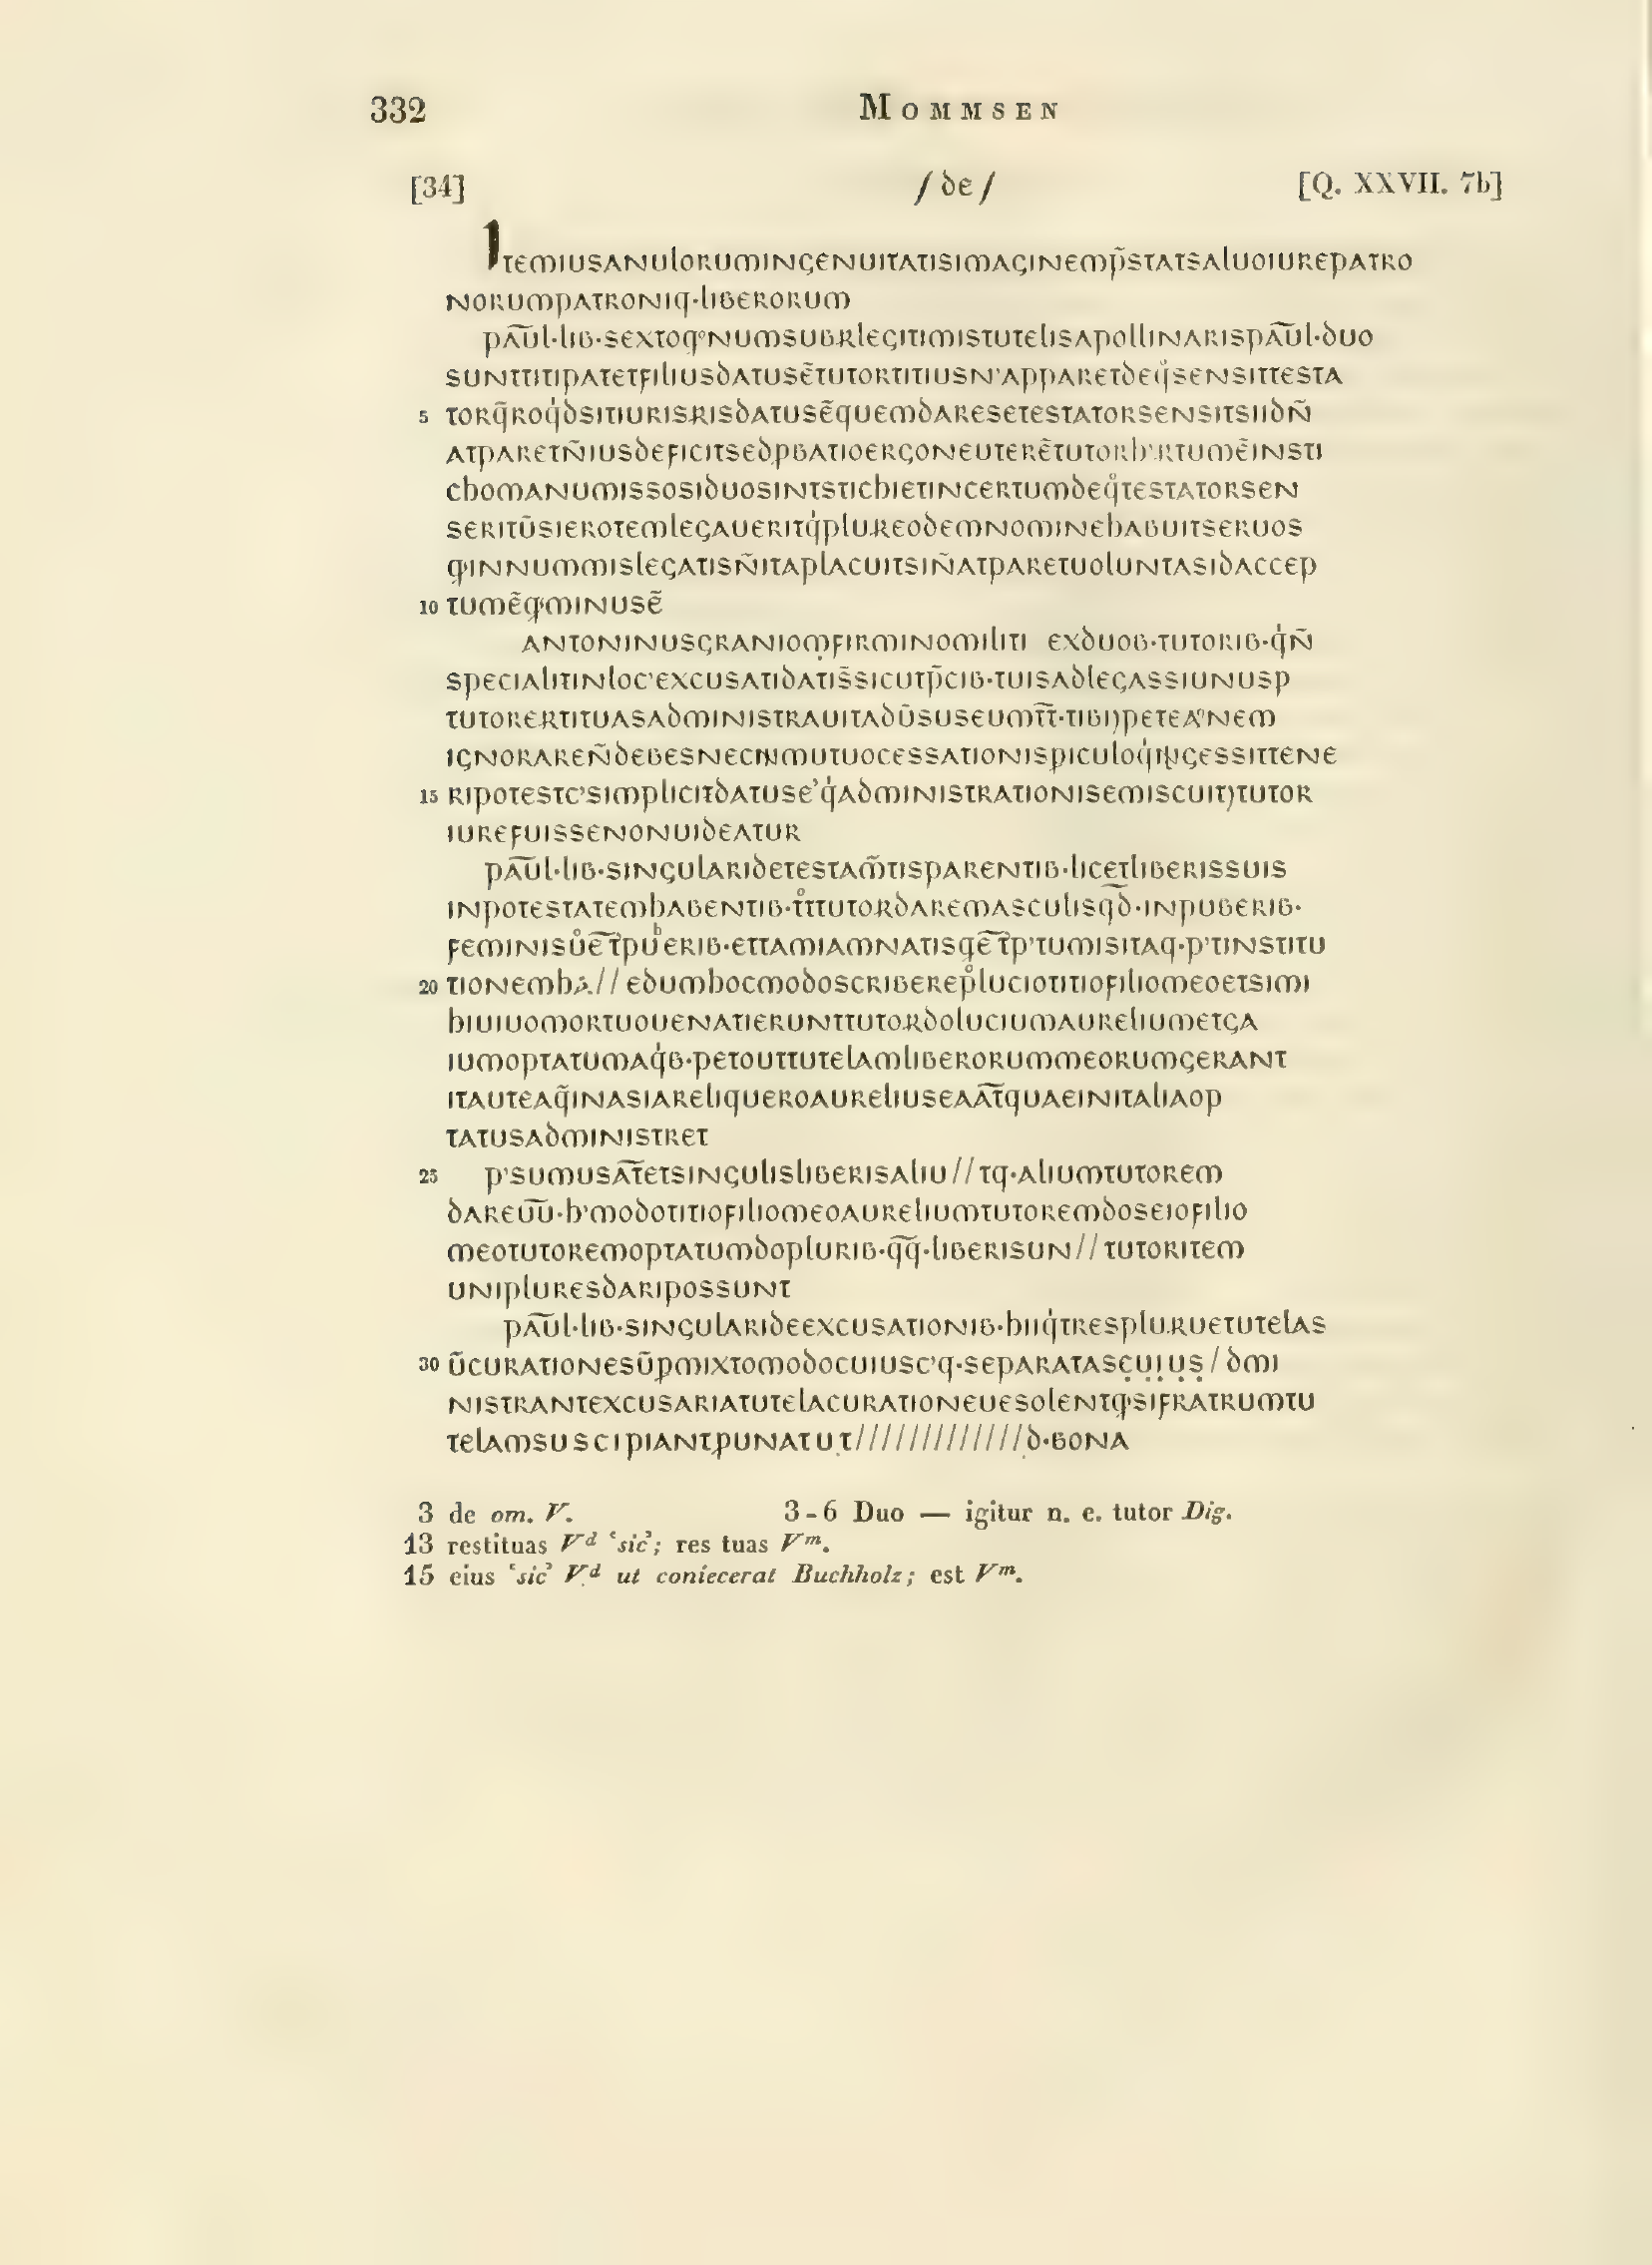 332 MOMMSEN
[34] /de/ [Q. XXVII. 7b]
ITEMIUSANULORUMINGENUITATISIMAGINEMP̄STATSALUOIUREPATRO
NORUMPATRONIQ·LIBERORUM
PAŪL·LIB·SEXTOQ°NUMSUBRLEGITIMISTUTELISAPOLLINARISPAŪL·DUO
SUNTTITIPATETFILIUSDATUSĒTUTORTITIUSN'APPARETDEQ̊SENSITTESTA
5 TORQ̄ROQ̇DSITIURISRISDATUSĒQUEMDARESETESTATORSENSITSIIDN̄
ATPARETN̄IUSDEFICITSEDPBATIOERGONEUTERĒTUTORH'RTUMĒINSTI
CHOMANUMISSOSIDUOSINTSTICHIETINCERTUMDEQ̊TESTATORSEN
SERITŪSIEROTEMLEGAUERITQ̇PLUREODEMNOMINEHABUITSERUOS
Q'INNUMMISLEGATISN̄ITAPLACUITSIN̄ATPARETUOLUNTASIDACCEP
10 TUMĒQ'MINUSĒ
ANTONINUSGRANIOMFIRMINOMILITI EXDUOB·TUTORIB·Q̇N̄
SPECIALITINLOC'EXCUSATIDATIS̄SICUTP̄CIB·TUISADLEGASSIUNUSP
TUTORERTITUASADMINISTRAUITADŪSUSEUMT̄T̄·TIBI)PETEA°NEM
IGNORAREN̄DEBESNECINMUTUOCESSATIONISPICULOQ̇NGESSITTENE
15 RIPOTESTC'SIMPLICITDATUSE'Q̇ADMINISTRATIONISEMISCUIT)TUTOR
IUREFUISSENONUIDEATUR
PAŪL·LIB·SINGULARIDETESTAM̄TISPARENTIB·LICETLIBERISSUIS
INPOTESTATEMHABENTIB·T̊TTUTORDAREMASCULISQ̄D̄·INPUBERIB·
FEMINISŮĒT̄PUᵇERIB·ETTAMIAMNATISQĒT̄P'TUMISITAQ·P'TINSTITU
20 TIONEMHA//EDUMHOCMODOSCRIBEREP̊LUCIOTITIOFILIOMEOETSIMI
HIUIUOMORTUOUENATIERUNTTUTORDOLUCIUMAURELIUMETGA
IUMOPTATUMAQ̇B·PETOUTTUTELAMLIBERORUMMEORUMGERANT
ITAUTEAQ̄INASIARELIQUEROAURELIUSEAĀT̄QUAEINITALIAOP
TATUSADMINISTRET
25 P'SUMUSĀT̄ETSINGULISLIBERISALIU//TQ·ALIUMTUTOREM
DAREŪŪ·H'MODOTITIOFILIOMEOAURELIUMTUTOREMDOSEIOFILIO
MEOTUTOREMOPTATUMDOPLURIB·Q̄Q̄·LIBERISUN//TUTORITEM
UNIPLURESDARIPOSSUNT
PAŪL·LIB·SINGULARIDEEXCUSATIONIB·HIIQ̇TRESPLURUETUTELAS
30 ŪCURATIONESŪPMIXTOMODOCUIUSC'Q·SEPARATASC̣ỤỊỤṢ/DMI
NISTRANTEXCUSARIATUTELACURATIONEUESOLENTQ'SIFRATRUMTU
TELAMSUSCIPIANTPUNATUT/////////////D·BONA
3 de om. V. 3-6 Duo — igitur n. e. tutor Dig.
13 restituas Vᵈ 'sic'; res tuas Vᵐ.
15 eius 'sic' Vᵈ ut coniecerat Buchholz; est Vᵐ.